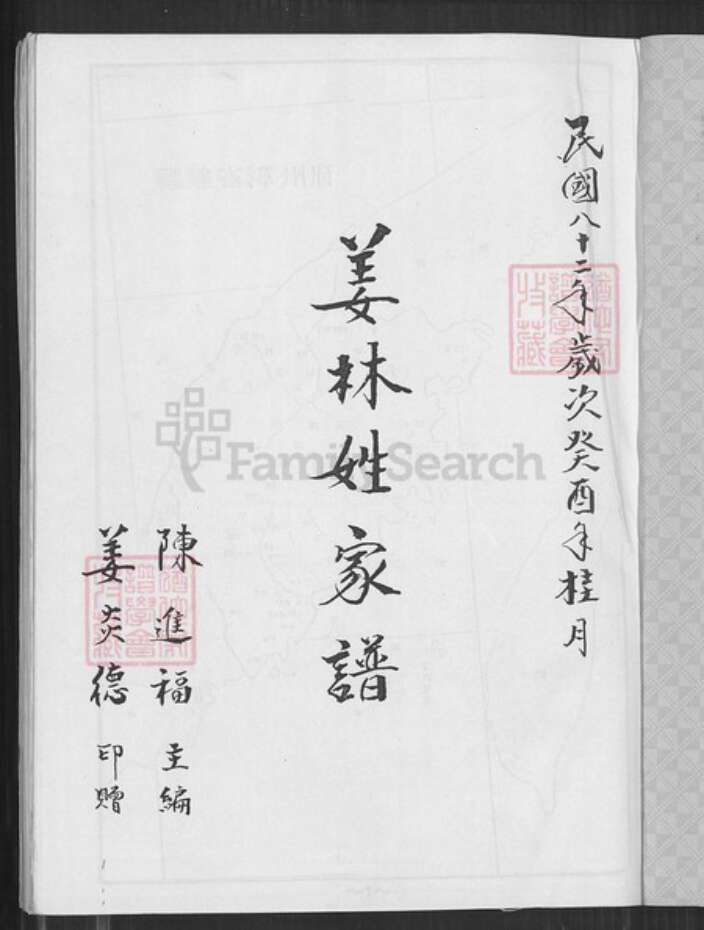 民國八十二年歲次癸酉年桂月
姜林姓家譜
陳進福 主編
姜炎德 印贈
FamilySearch